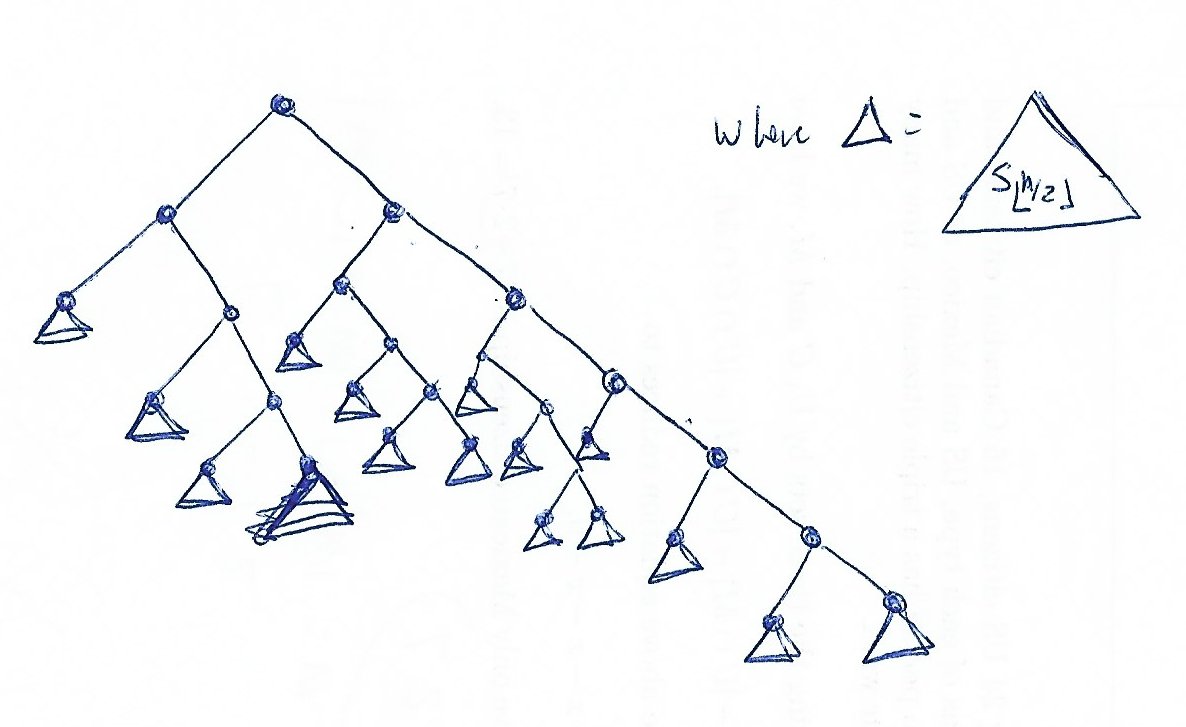 where △ =
S⌊n/2⌋